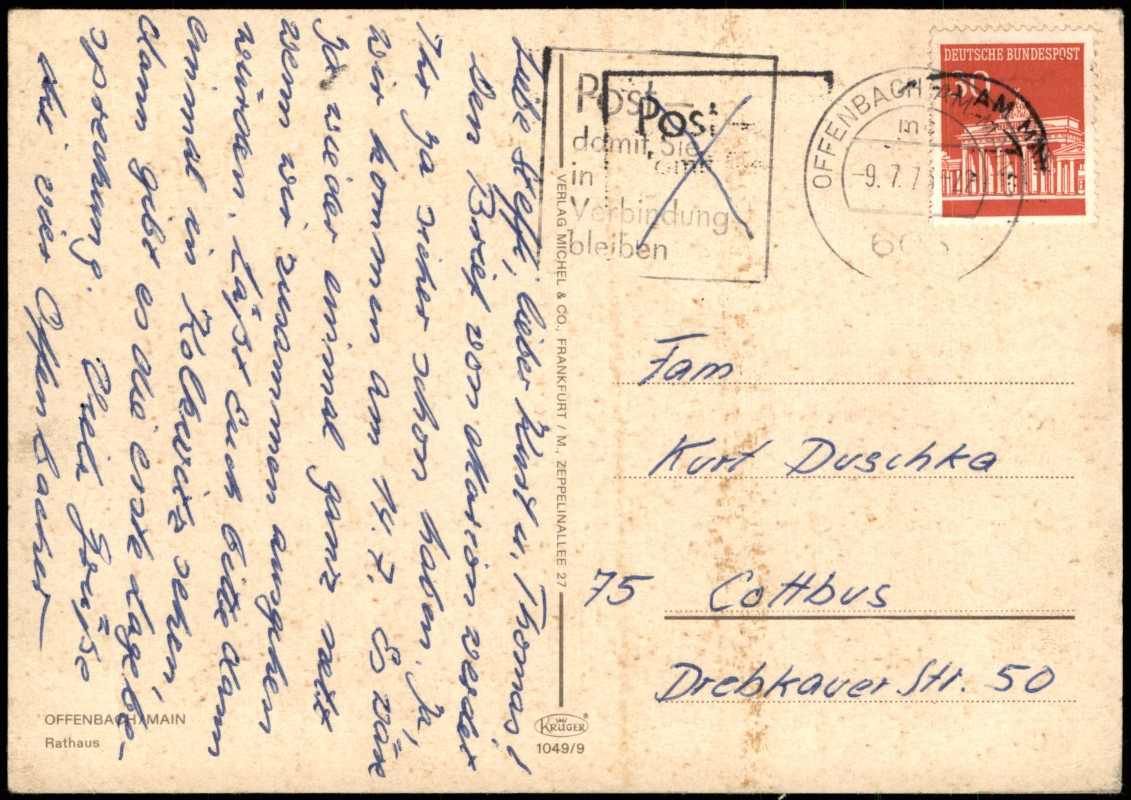 Liebe Steffi, lieber Kurt u. Thomas!
Den Brief von Marion werdet
Ihr ja sicher schon haben. Ja,
wir kommen am 14.7. Es wäre
ja wieder einmal ganz nett
wenn wir zusammen ausgehen
würden. Laßt Euch bitte dann
einmal in Kolkwitz sehen,
dann gibt es die erste Lagebe-
sprechung. Viele Grüße
die vier Offenbacher
OFFENBACH/MAIN
Rathaus
VERLAG MICHEL & CO., FRANKFURT / M., ZEPPELINALLEE 27
KRÜGER
1049/9
Post –
damit Sie
in
Verbindung
bleiben
Post
OFFENBACH AM MAIN
-9.7.7
DEUTSCHE BUNDESPOST
30
Fam
Kurt Duschka
75 Cottbus
Drebkauer Str. 50